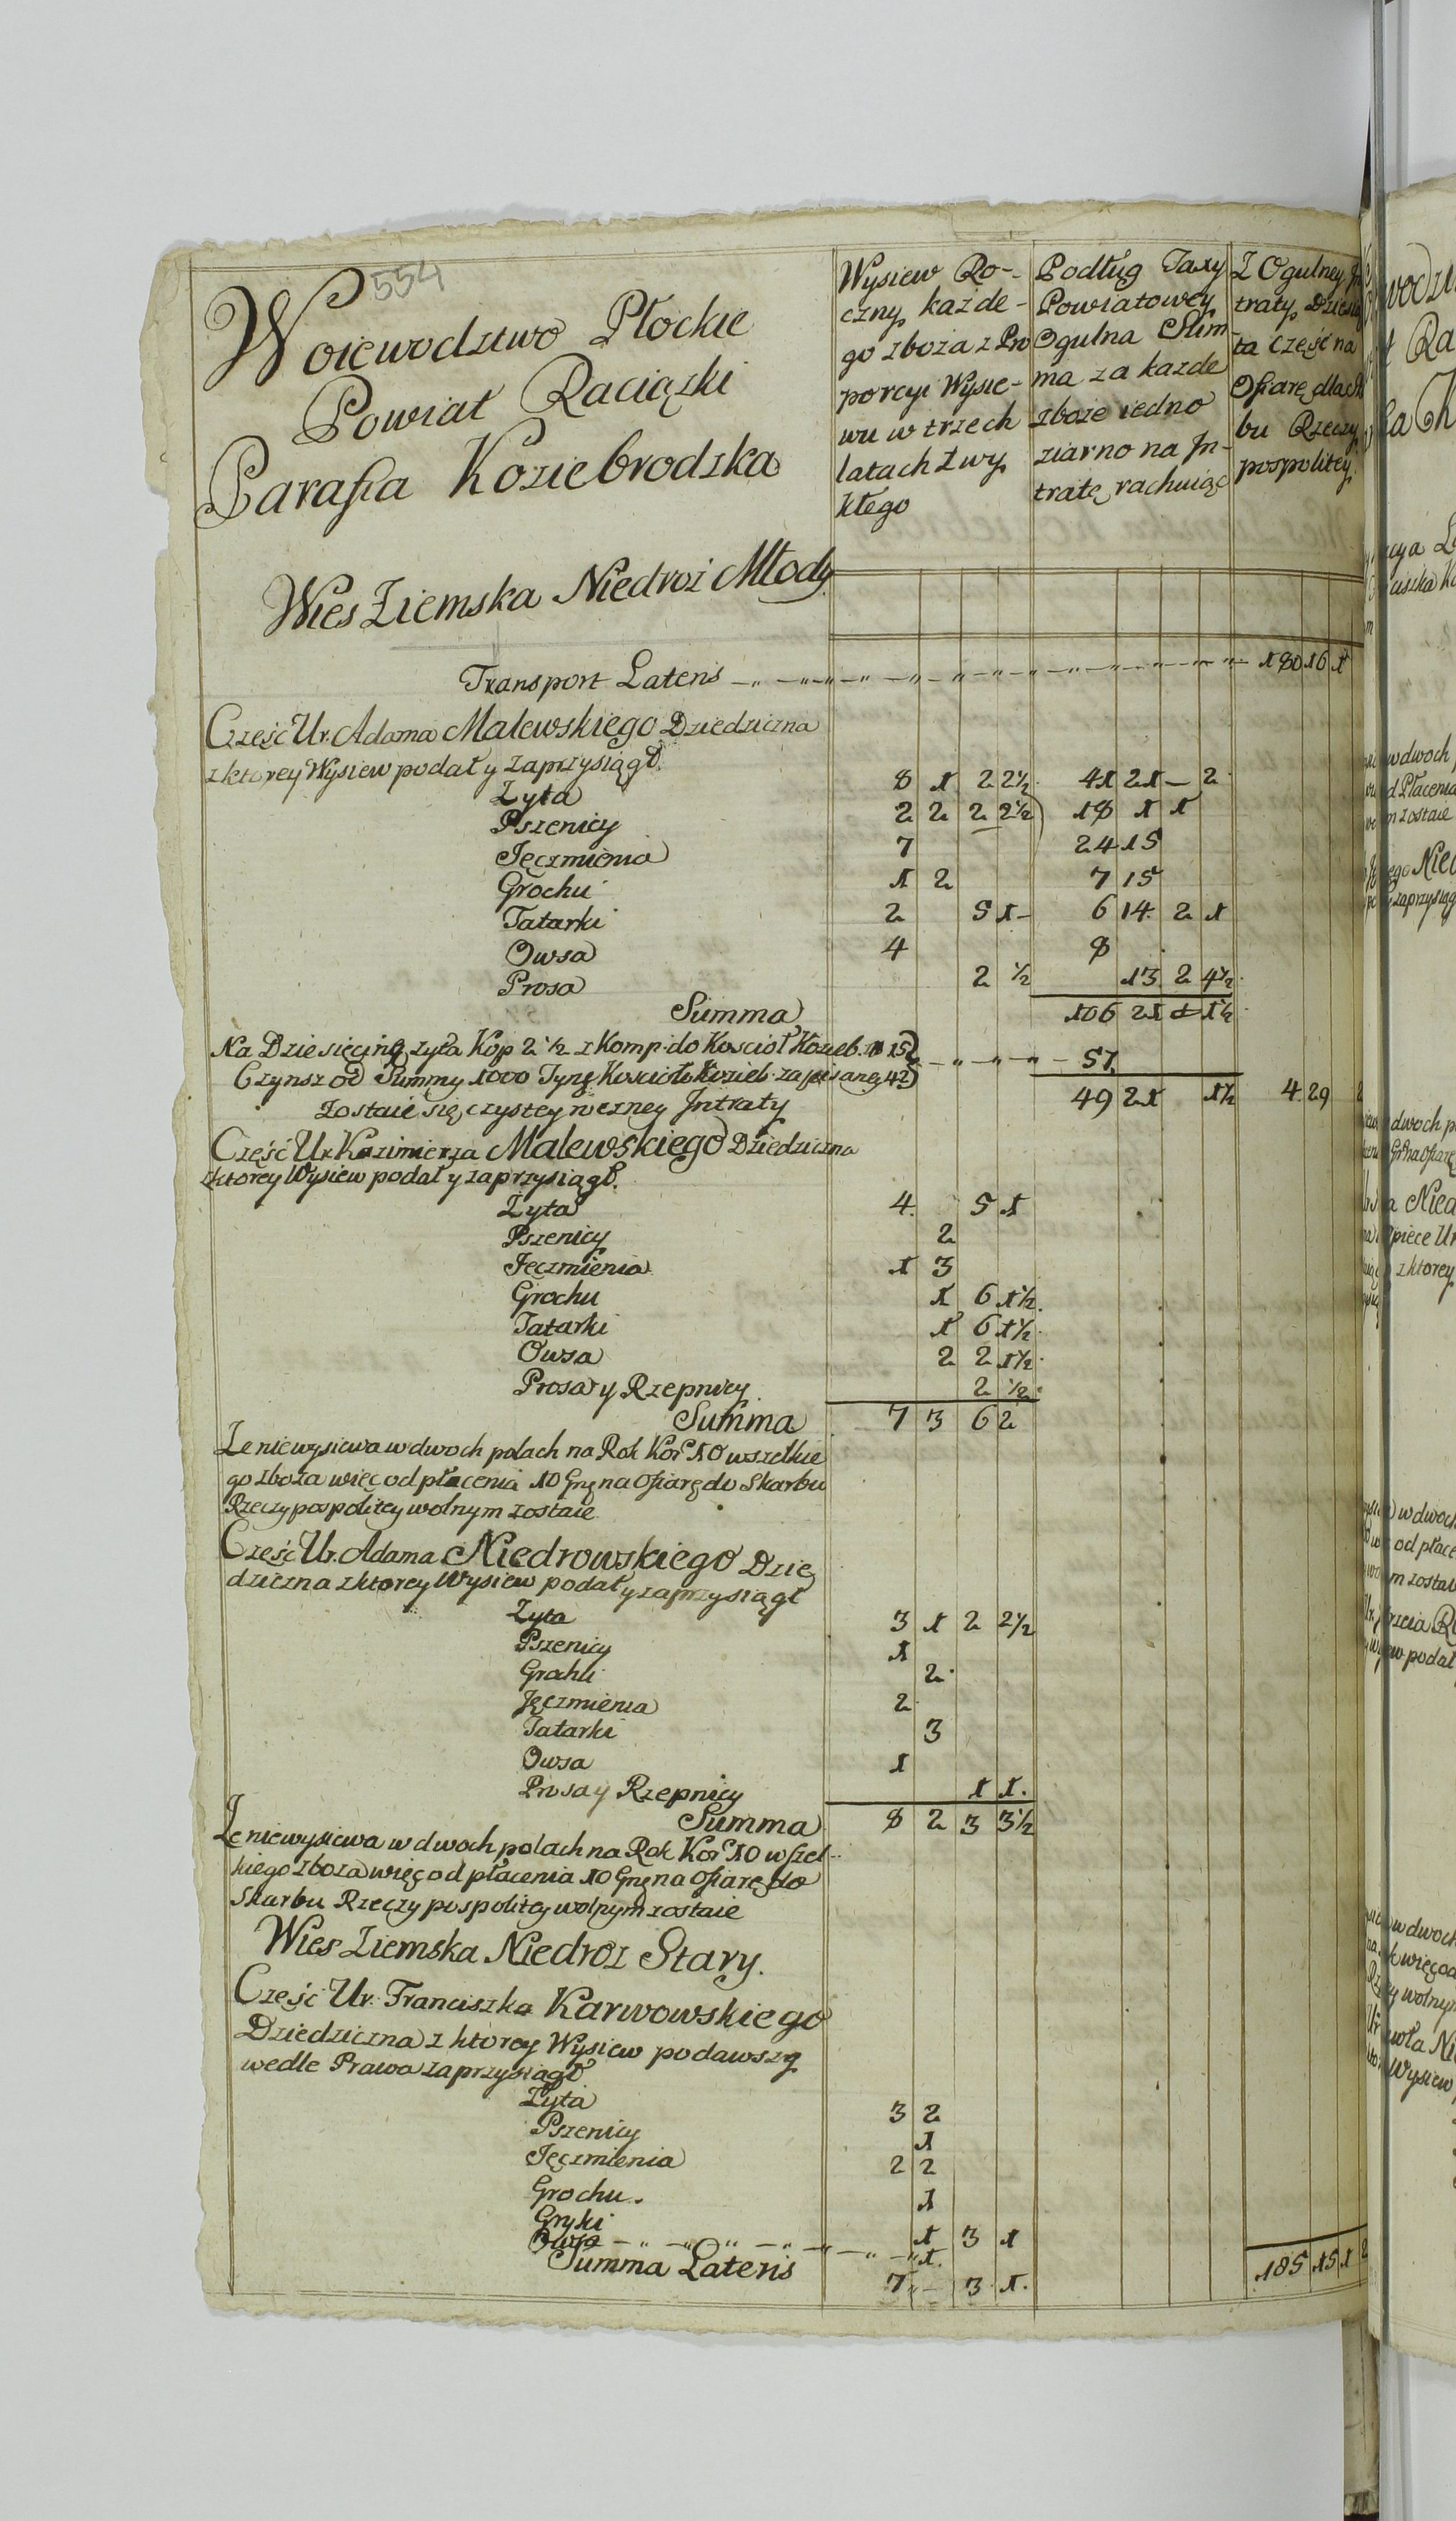 554
Woiewodztwo Płockie
Powiat Raciązki
Parafia Koziebrodzka
Wysiew Ro-
czny każde-
go zboza z Pro
porcyi Wysie-
wu w trzech
latach zwy
kłego
Podług Taxy
Powiatowey
Ogulna Sum-
ma za kazde
zboże iedno
ziarno na In-
tratę rachuiąc
Z Ogulney In
traty Dziesią
ta część na
Ofiarę dla
bu Rzeczy
pospolitey.
Wies Ziemska Niedroż Młody
Transport Lateris 180 16 1
Część Ur. Adama Malewskiego Dziedziczna
z ktorey Wysiew podał y zaprzysiągł.
Zyta 8 1 2 2½ 41 21 – 2
Pszenicy 2 2 2 2½ 18 1 1
Jęczmienia 7 24 15
Grochu 1 2 7 15
Tatarki 2 5 1– 6 14 2 1
Owsa 4 8
Prosa 2 ½ 13 2 4½
Summa 106 21 1½
Na Dziesięcinę zyta Kop 2½ z Komp. do Kościoł Kozieb. 15
Czynsz od Summy 1000 Tynf Kościoło Kozieb. zapisaney 42 – 57.
Zostaie się czystey roczney Intraty 49 21 1½ 4 29
Część Ur. Kazimierza Malewskiego Dziedziczna
z ktorey Wysiew podał y zaprzysiągł.
Zyta 4 5 1
Pszenicy 2
Jęczmienia 1 3
Grochu 1 6 1½
Tatarki 1 6 1½
Owsa 2 2 1½
Prosa y Rzepnicy 2 ½
Summa 7 3 6 2
Ze niewysiewa w dwoch polach na Rok Kor 10 wszelkie
go zboza więc od płacenia 10 Grę na Ofiarę do Skarbu
Rzeczypospolitey wolnym zostaie
Część Ur. Adama Niedrowskiego Dzie
dziczna z ktorey Wysiew podał y zaprzysiągł
Zyta 3 1 2 2½
Pszenicy 1
Grochu 2
Jęczmienia 2
Tatarki 3
Owsa 1
Prosa y Rzepnicy 1 1.
Summa 8 2 3 3½
Ze niewysiewa w dwoch polach na Rok Kor 10 wszel-
kiego zboza więc od płacenia 10 Grę na Ofiarę do
Skarbu Rzeczypospolitey wolnym zostaie
Wies Ziemska Niedroz Stary.
Część Ur. Franciszka Karwowskiego
Dziedziczna z ktorey Wysiew podawszy
wedle Prawa zaprzysiągł
Zyta 3 2
Pszenicy 1
Jęczmienia 2 2
Grochu. 1
Gryki 1 3 1
Owsa 1.
Summa Lateris 7 – 3 1. 185 15 1